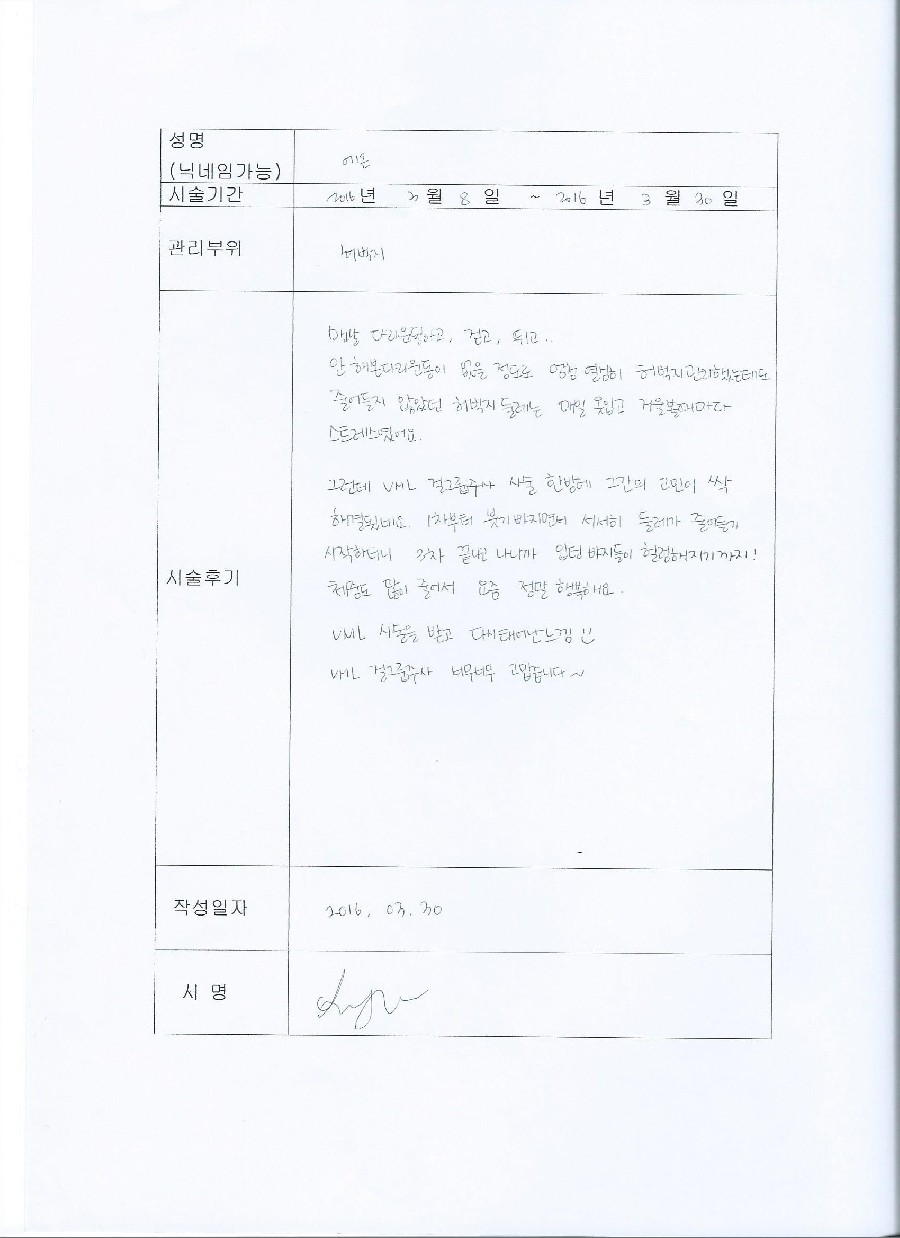 성명
(닉네임가능)
예은
시술기간 2016년 3월 8일 ~ 2016년 3월 30일
관리부위 허벅지
시술후기
매일 다리운동하고, 걷고, 뛰고..
안 해본다리운동이 없을 정도로 엄청 열심히 허벅지관리했는데도
줄어들지 않았던 허벅지 둘레는 매일 옷입고 거울볼때마다
스트레스였어요.
그런데 VML 걸그룹주사 시술 한방에 그간의 고민이 싹
해결됐네요. 1차부터 붓기빠지면서 서서히 둘레가 줄어들기
시작하더니 3차 끝내고 나니까 입던 바지들이 헐렁해지기까지!
체중도 많이 줄어서 요즘 정말 행복해요.
VML 시술을 받고 다시태어난느낌
VML 걸그룹주사 너무너무 고맙습니다~
작성일자 2016. 03. 30
서 명